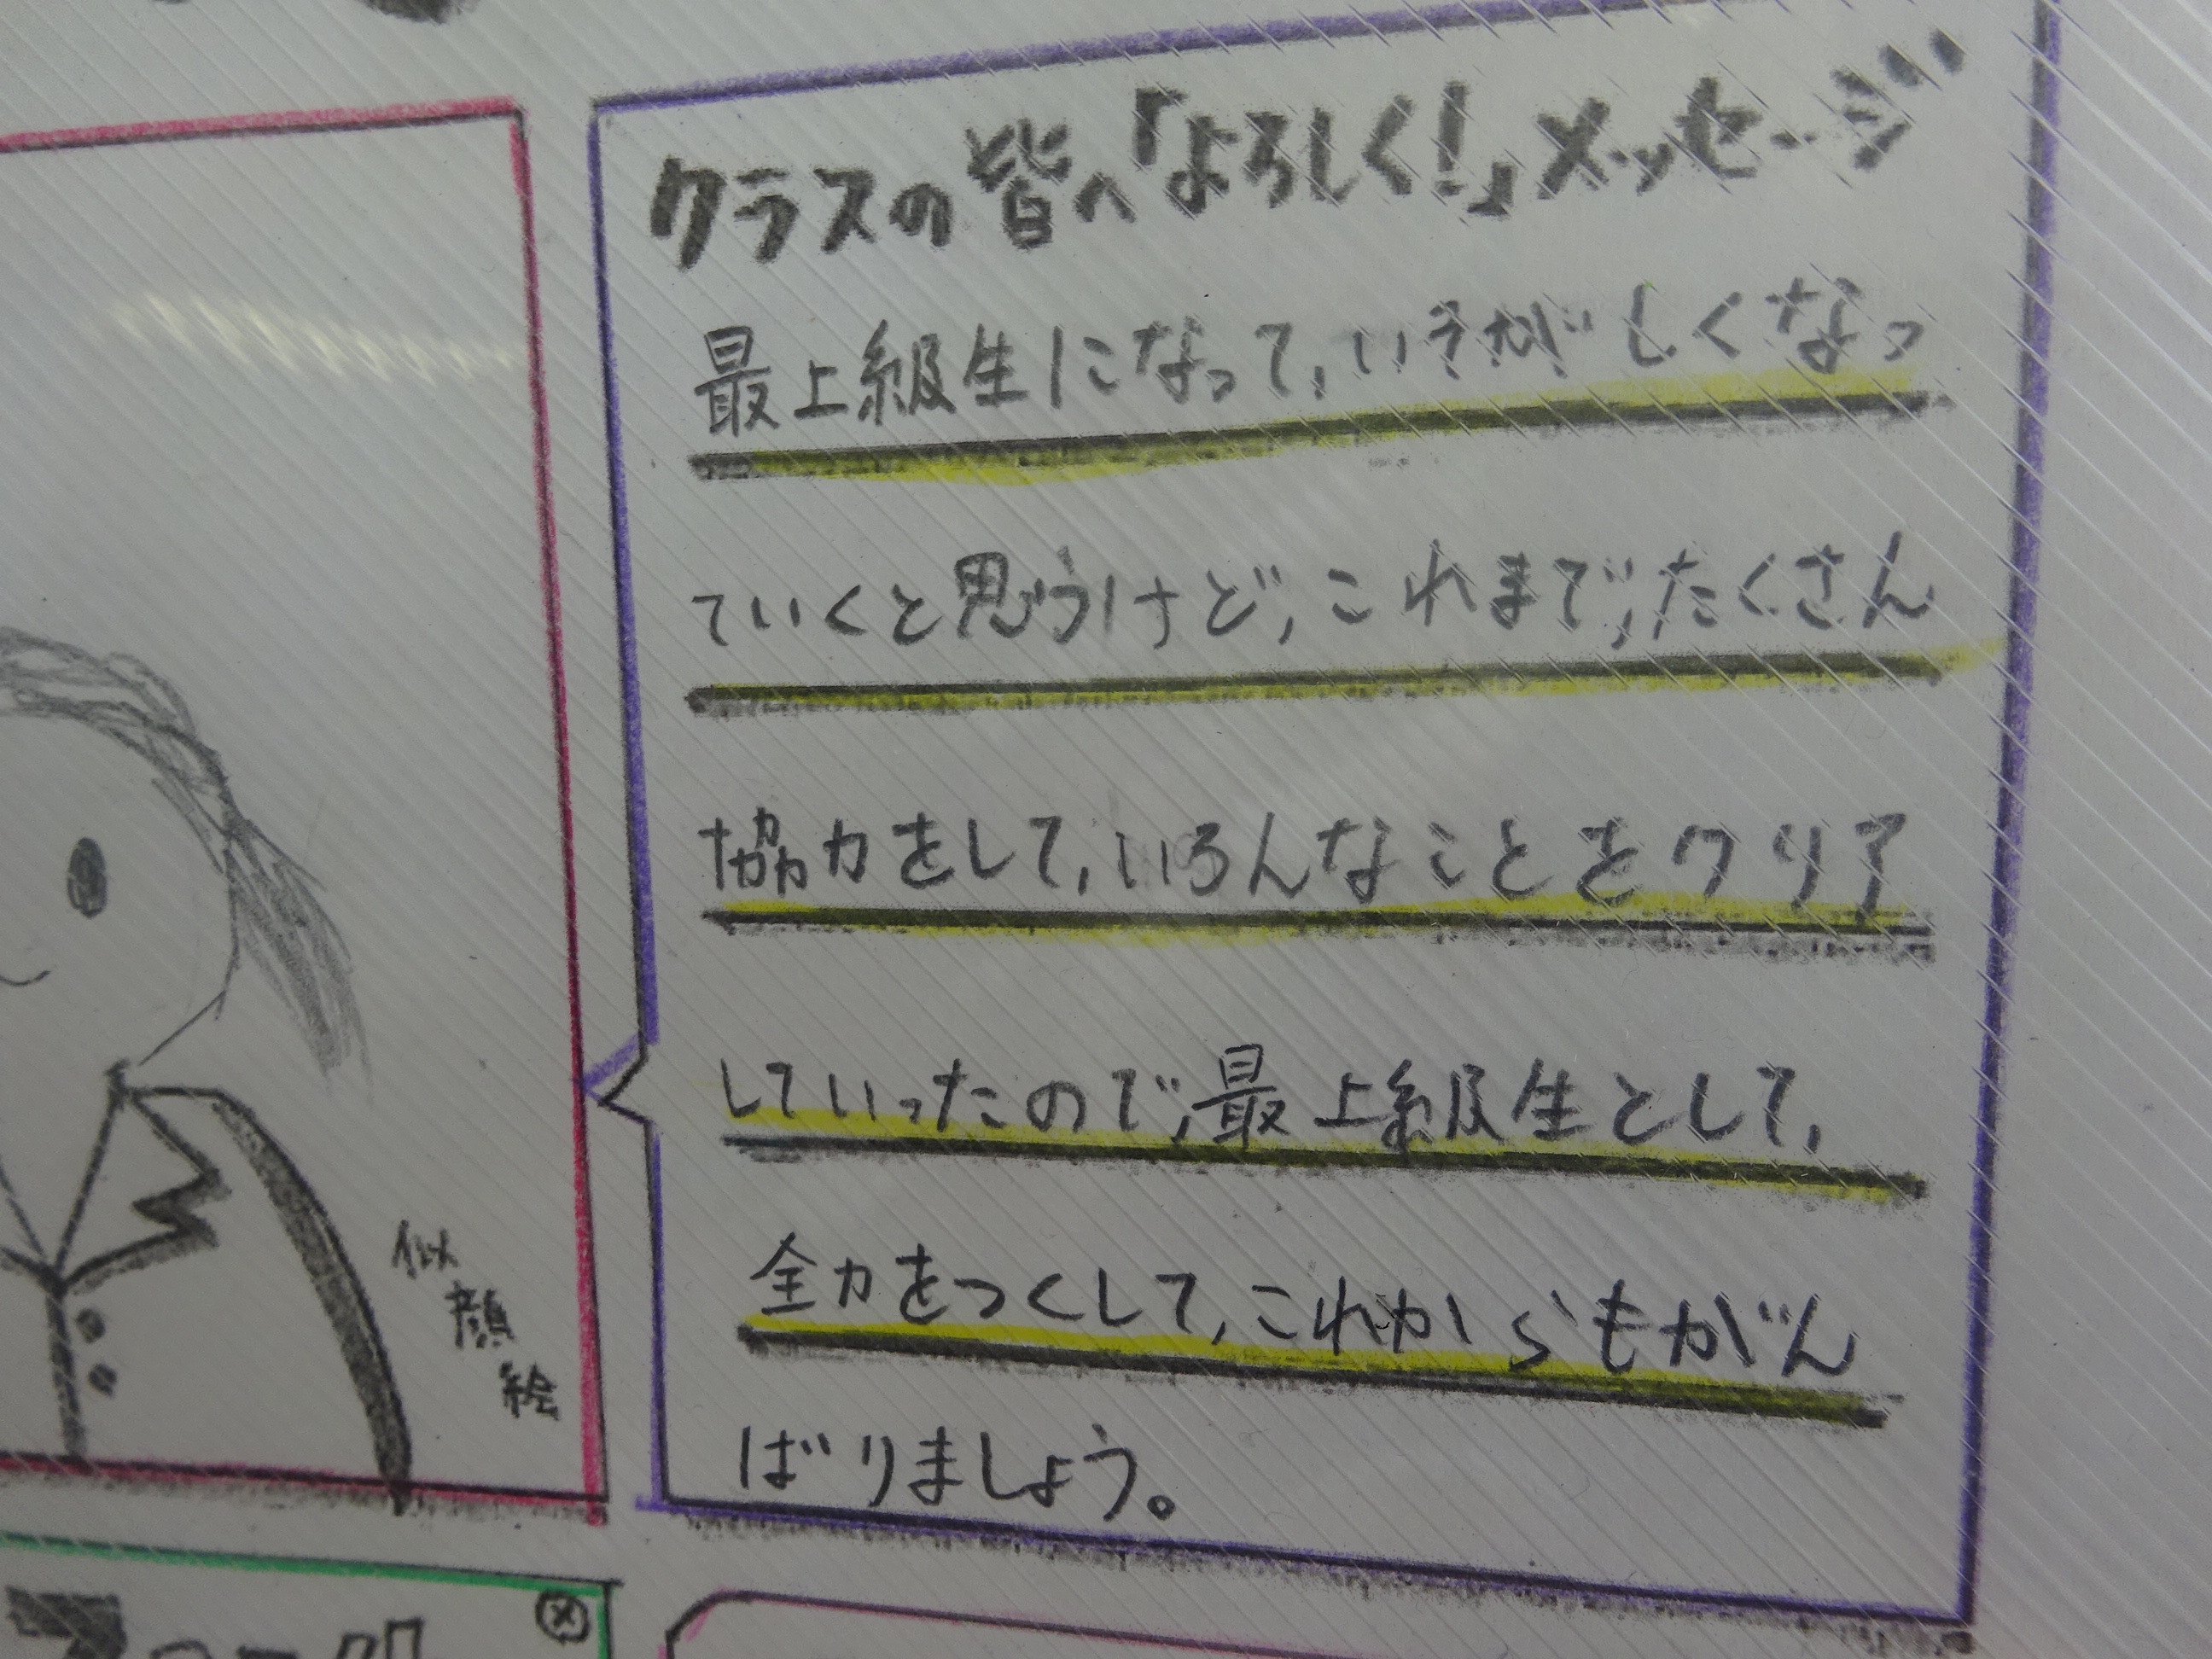 クラスの皆へ「よろしく!」メッセージ
最上級生になって,いそがしくなっ
ていくと思うけど,これまで,たくさん
協力をして,いろんなことをクリア
していったので,最上級生として,
全力をつくして,これからもがん
ばりましょう。
似
顔
絵